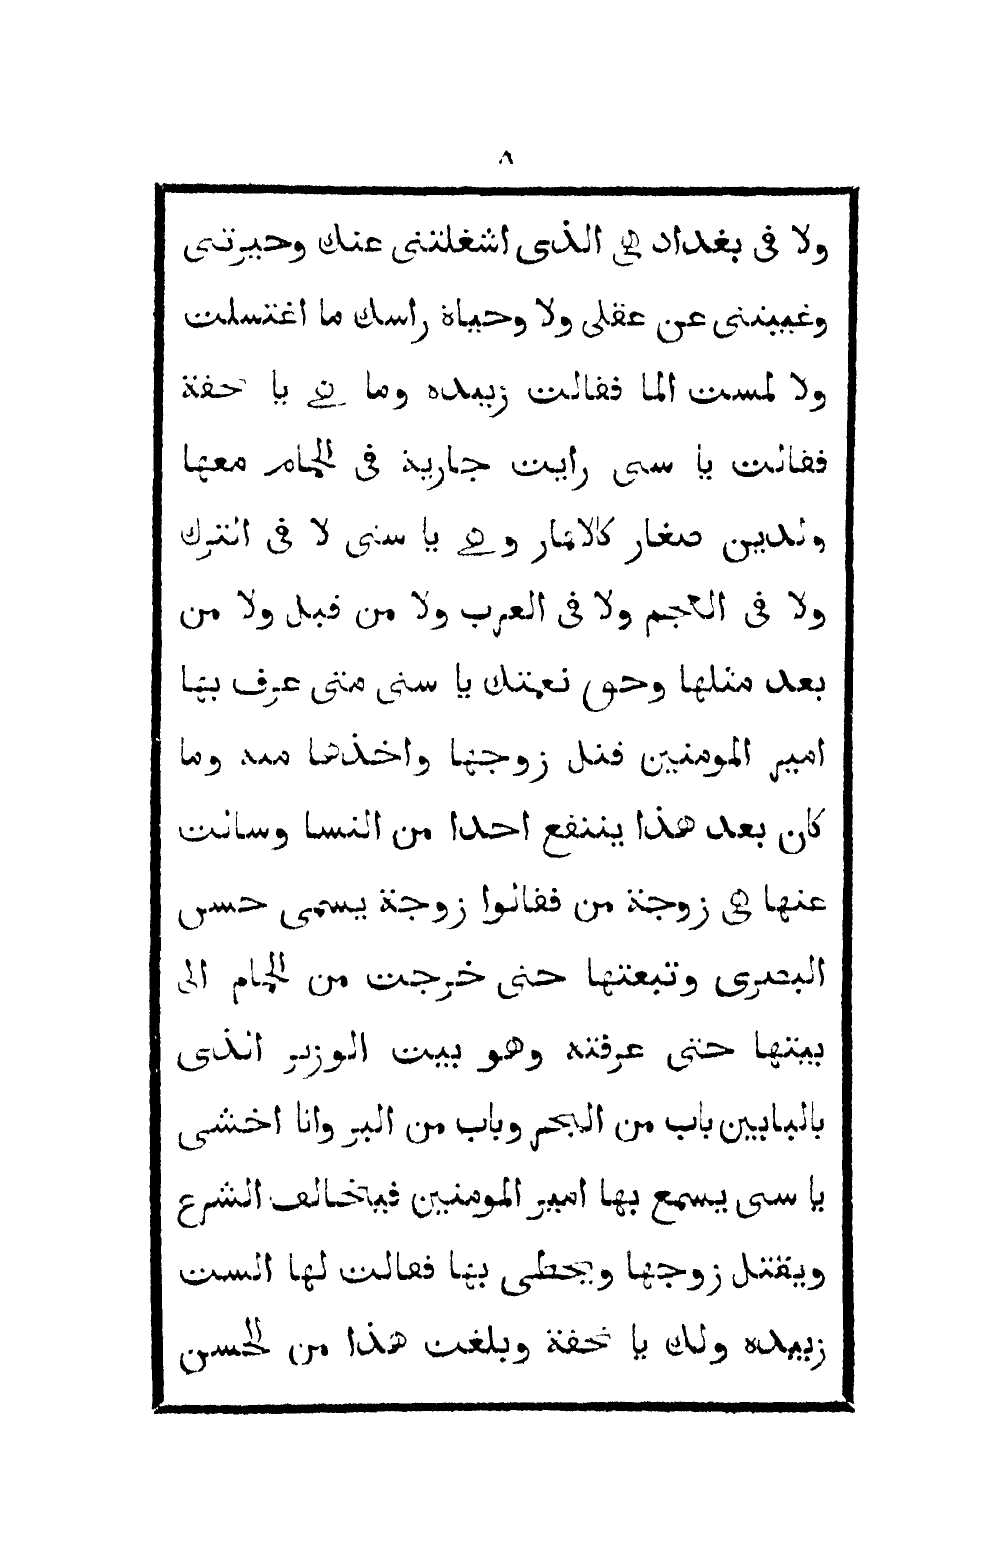 ٨
ولا فى بغداد هى الذى اشغلتنى عنك وحيرتنى
وغيبتنى عن عقلى ولا وحياة راسك ما اغتسلت
ولا لمست الما فقالت زبيده وما هى يا تحفة
فقالت يا ستى رايت جارية فى الحمام معها
ولدين صغار كالاقمار وهى يا ستى لا فى الترك
ولا فى العجم ولا فى العرب ولا من قبل ولا من
بعد مثلها وحق نعمتك يا ستى متى عرف بها
امير المومنين قتل زوجها واخذها منه وما
كان بعد هذا ينتفع احدا من النسا وسالت
عنها هى زوجة من فقالوا زوجة يسمى حسن
البصرى وتبعتها حتى خرجت من الحمام الى
بيتها حتى عرفته وهو بيت الوزير الذى
بالبابين باب من البحر وباب من البر وانا اخشى
يا ستى يسمع بها امير المومنين فيخالف الشرع
ويقتل زوجها ويحظى بها فقالت لها الست
زبيده ولك يا تحفة وبلغت هذا من الحسن